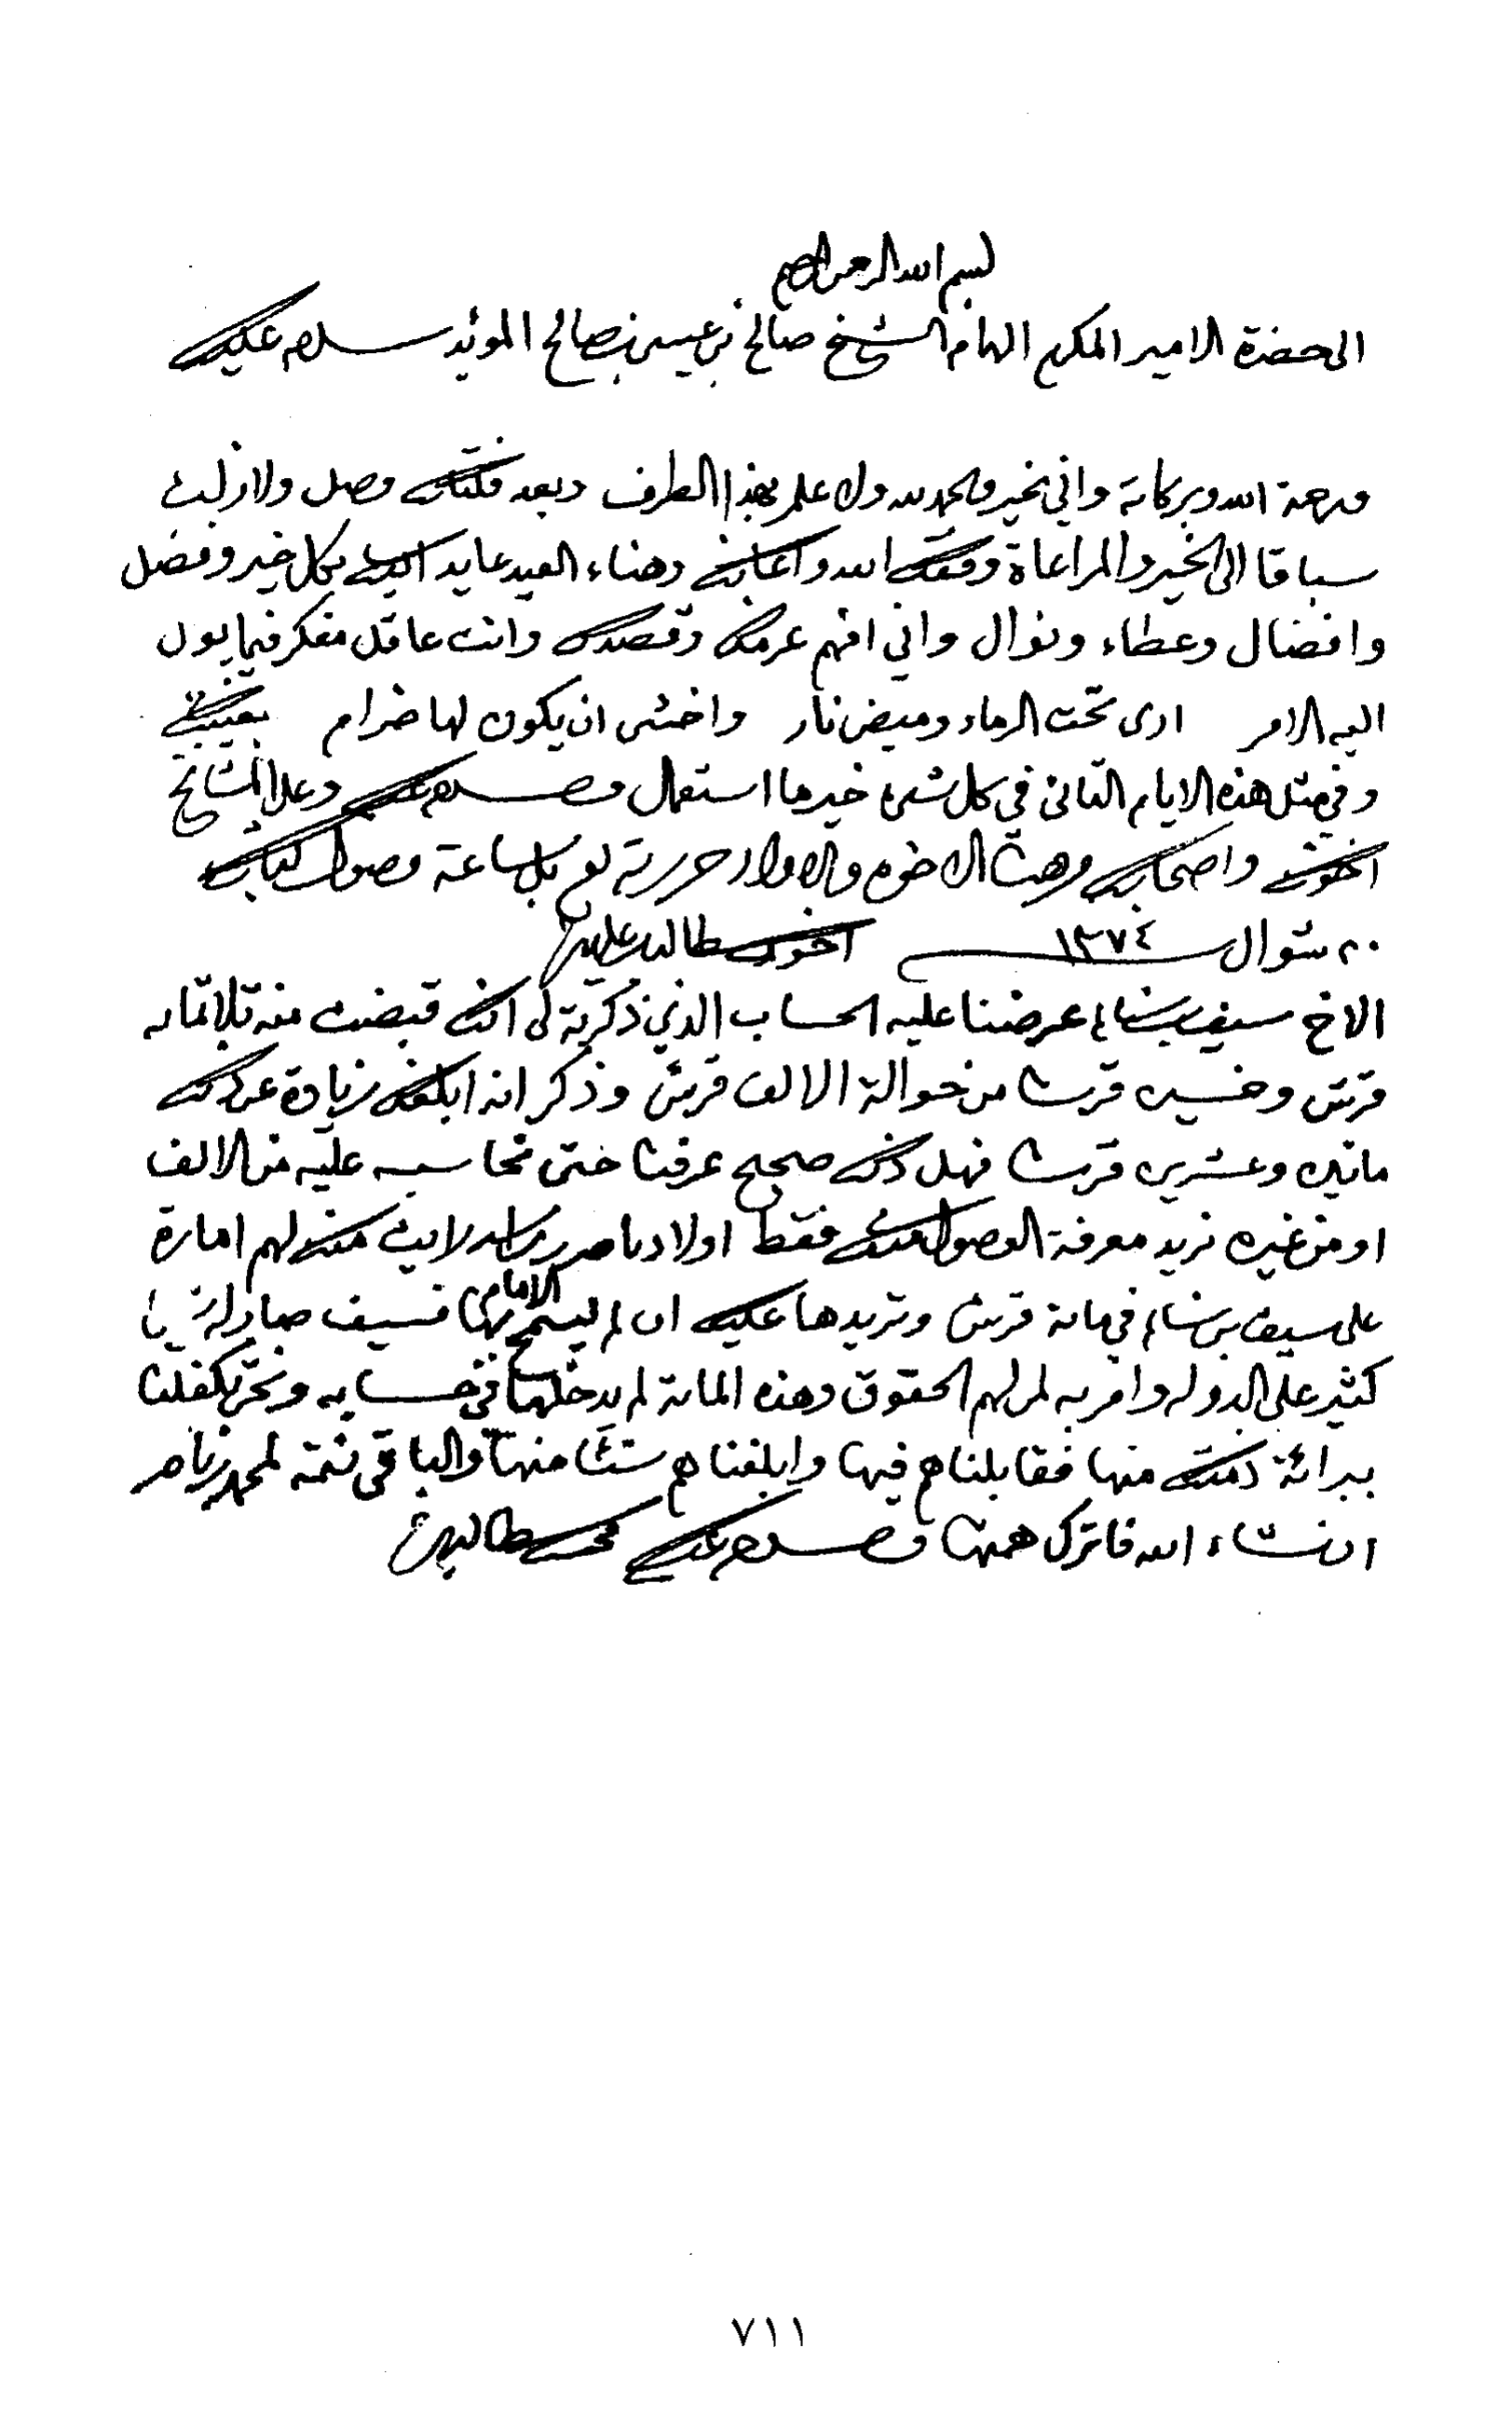 بسم الله الرحمن الرحيم
الى حضرة الامير المكرم الهمام الشيخ صالح بن عيسى بن صالح الموئيد سلام عليك
ورحمة الله وبركاته واني بخير والحمد لله ولا علم بهذا الطرف وبعد فكتابك وصل ولا زلت
سباقا الى الخير والمراعاة وفقك الله واعانك وهناء العيد عايد اليك بكل خير وفضل
وافضال وعطاء ونوال واني افهم عزمك وقصدك وانت عاقل مفكر فيما يول
اليه الامر ارى تحت الرماد وميض نار واخشى ان يكون لها ضرام
وفي مثل هذه الايام التانى في كل شيء خيرها استعمل والسلام عليك وعلى المشايخ
اخوتك واصحابك ومن هنا الاخوه والاولاد حرر يوم ساعة وصول كتابك
٢٠ شوال ١٣٧٤ اخوك طالب بن علي
الاخ سيف بن سنان عرضنا عليه الحساب الذي ذكرته لى انك قبضت منه ثلاثمايه
قرش وخمسين قرشا من حوالة الالف قرش وذكر انه ابلغك زيادة عن ذلك
ماتين وعشرين قرشا فهل ذلك صحيح عرفنا حتى نحاسبه عليه من الالف
او من غيره نريد معرفة الوصول منك فقط اولاد ناصر رايت منك لهم امارة
على سيف بن سنان في ماية قرش وتريدها عليك ان لم يسمح الامام بها فسيف
كثير على الدوله لهم الحقوق وهذه الماية لم يدخلها في حسابه ونحن تكفلنا
ببرائة ذمتك منها فقابلناهم فيها وابلغناهم شيئا منها والباقي نتمه لمحمد بن ناصر
ان شاء الله فاترك همها والسلام عليك محبك طالب
٧١١